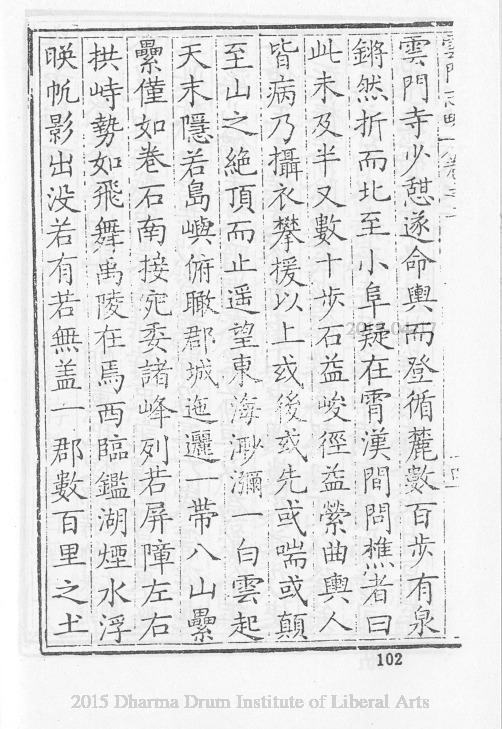 雲門寺少憇遂命輿而登循麓數百步有泉
鏘然折而北至小阜疑在霄漢間問樵者曰
此未及半又數十步石益峻徑益縈曲輿人
皆病乃攝衣攀援以上或後或先或喘或顛
至山之絶頂而止遥望東海渺瀰一白雲起
天末隱若島嶼俯瞰郡城迤邐一帶八山纍
纍僅如卷石南接宛委諸峰列若屏障左右
拱峙勢如飛舞禹陵在焉西臨鑑湖煙水浮
暎帆影出没若有若無盖一郡數百里之土
102
2015 Dharma Drum Institute of Liberal Arts